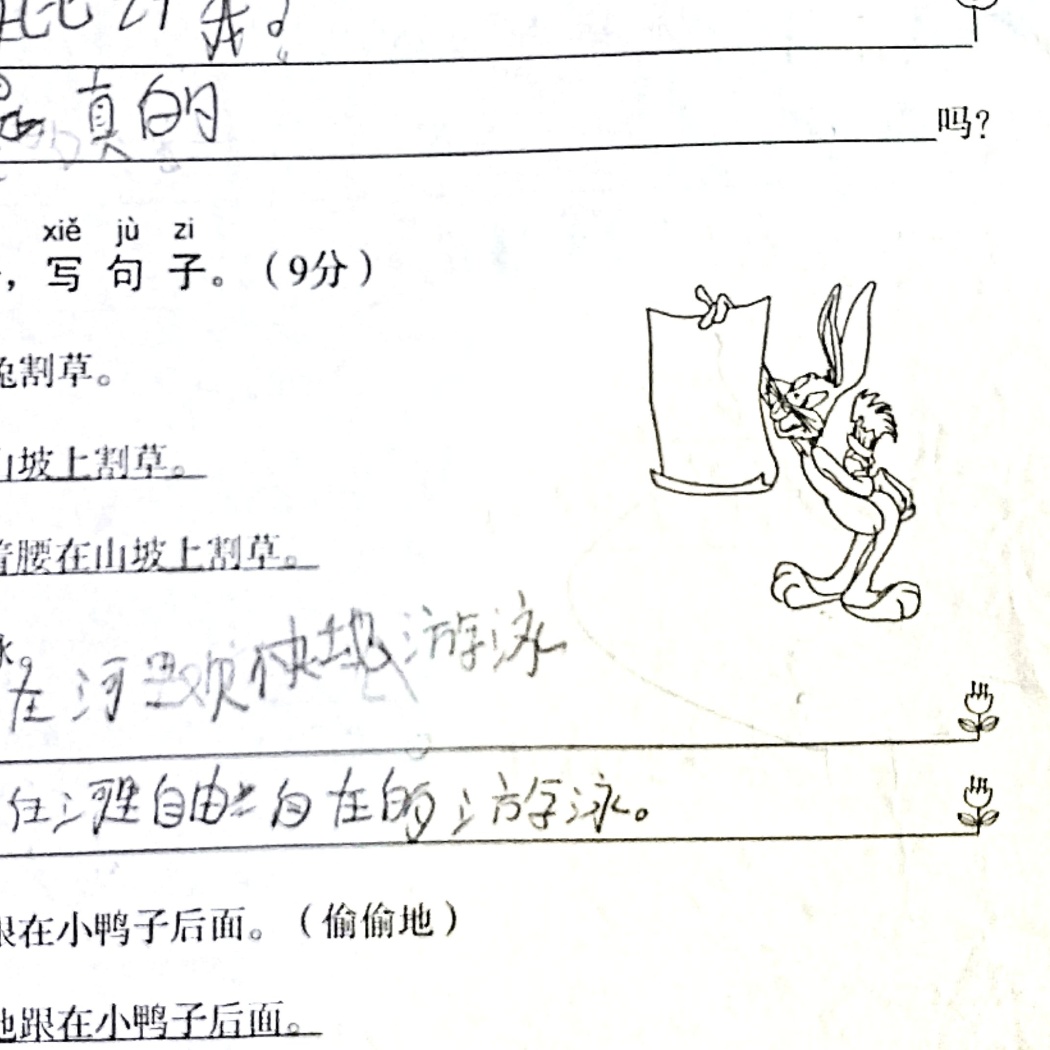 我？
真的
吗？
xiě jù zi
，写句子。（9分）
兔割草。
山坡上割草。
着腰在山坡上割草。
泳。
在河里欢快地游泳
在河里自由自在的游泳。
跟在小鸭子后面。（偷偷地）
地跟在小鸭子后面。